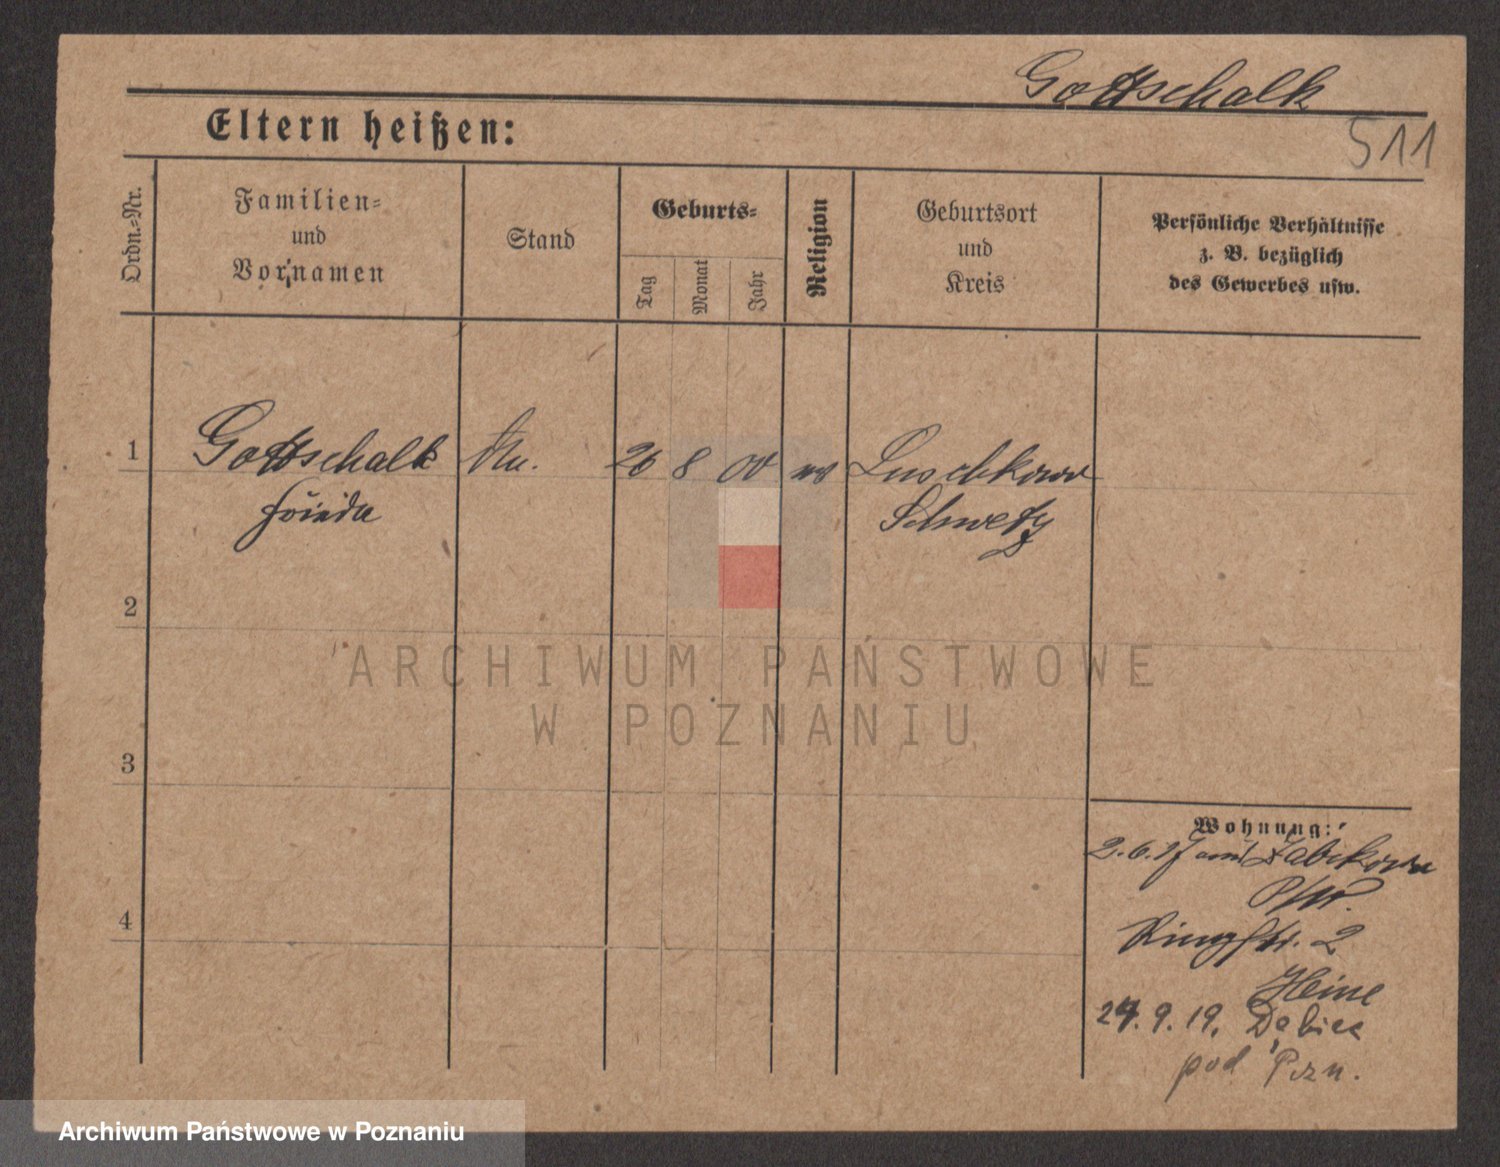 Gottschalk
Eltern heißen:
511
Ordn.-Nr.
Familien-
und
Vornamen
Stand
Geburts-
Tag
Monat
Jahr
Religion
Geburtsort
und
Kreis
Persönliche Verhältnisse
z. B. bezüglich
des Gewerbes usw.
1
Gottschalk
26 8 00
Luschkowo
Frieda
Schwetz
2
ARCHIWUM PAŃSTWOWE
W POZNANIU
3
Wohnung:
2.6.17 Zabikowo
4
Ringstr. 2
Heine
24. 9. 19. Dębiec
pod Pozn.
Archiwum Państwowe w Poznaniu